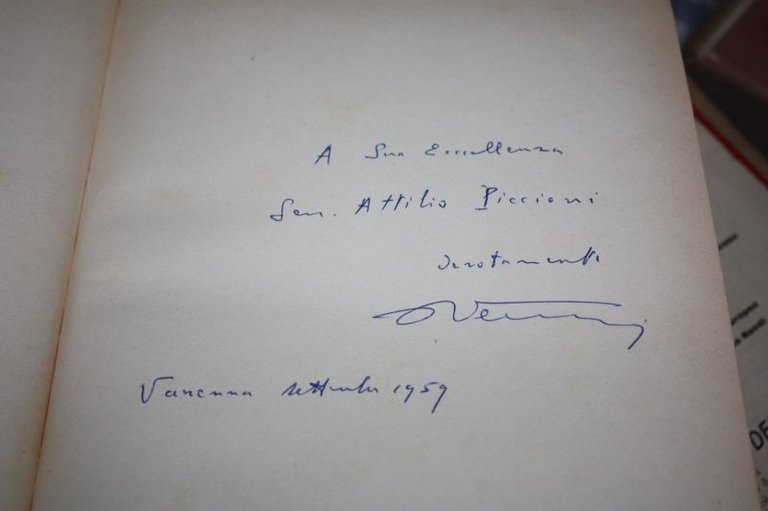 A Sua Eccellenza
Sen. Attilio Piccioni
devotamente
Varenna settembre 1959
DE